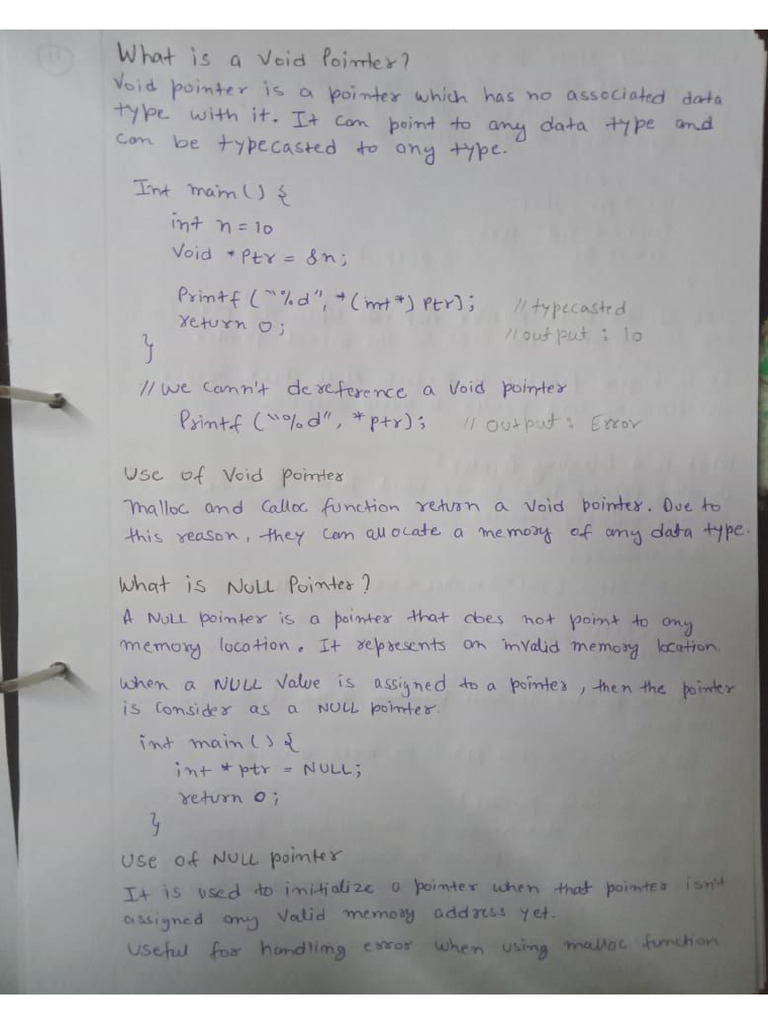 What is a Void Pointer?
Void pointer is a pointer which has no associated data
type with it. It can point to any data type and
can be typecasted to any type.
Int main() {
int n = 10
Void *Ptr = &n;
Printf ("%d", *(int*) Ptr); // typecasted
return 0; // output : 10
}
// We cann't dereference a Void pointer
Printf ("%d", *ptr); // output : Error
Use of Void pointer
Malloc and Calloc function return a Void pointer. Due to
this reason, they can allocate a memory of any data type.
What is NULL Pointer?
A NULL pointer is a pointer that does not point to any
memory location. It represents an invalid memory location
When a NULL Value is assigned to a pointer, then the pointer
is Consider as a NULL pointer.
int main() {
int * ptr = NULL;
return 0;
}
Use of NULL pointer
It is used to initialize a pointer when that pointer isn't
assigned any Valid memory address yet.
Useful for handling error when using malloc function